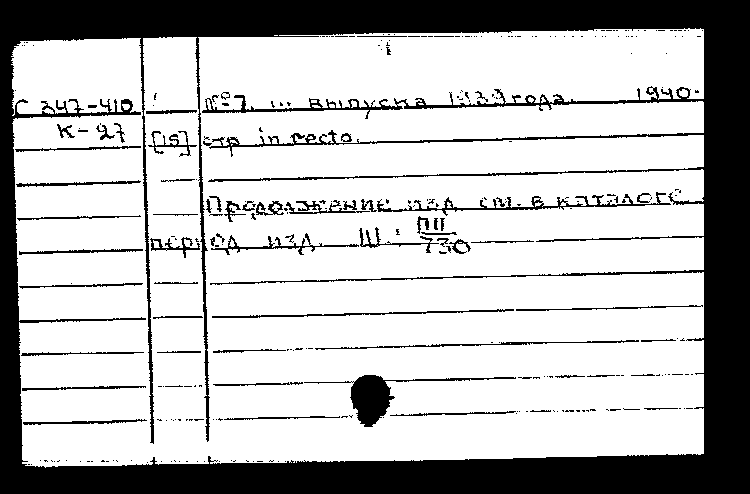 4
С 347-410 №7. ... выпуска 1939 года. 1940.
К-27 [15] стр in recto.
Продолжение изд. см. в каталоге
период изд. Ш: ПШ
730